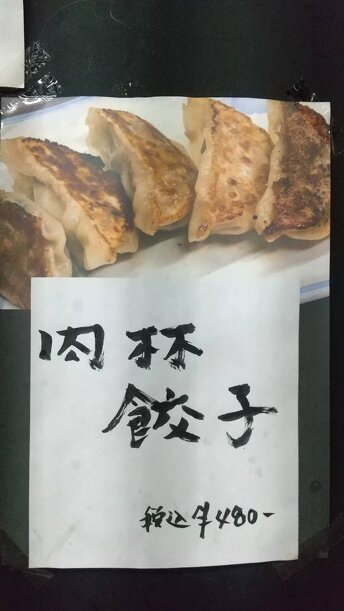 肉杯
餃子
税込¥480-